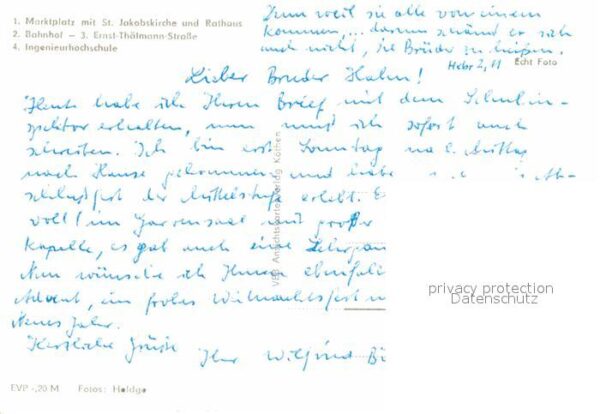 1. Marktplatz mit St. Jakobskirche und Rathaus
2. Bahnhof – 3. Ernst-Thälmann-Straße
4. Ingenieurhochschule
Denn weil sie alle von einem
kommen,... darum schämt er sich
auch nicht, sie Brüder zu heißen.
Hebr 2,11
Echt Foto
Lieber Bruder Hahn!
Heute habe ich Ihren Brief mit dem Schulin-
spektor erhalten, nun muß ich sofort auch
schreiben. Ich bin erst Sonntag
nach Hause gekommen und habe
der Mittelstufe erlebt.
voll! im und großer
Kapelle, es gab auch eine
Nun wünsche ich Ihnen
Advent, ein frohes Weihnachtsfest
Neues Jahr.
Herzliche Grüße
Ihr Wilfried
VEB Ansichtskartenverlag Köthen
privacy protection
Datenschutz
EVP -,20 M Fotos: Heldge